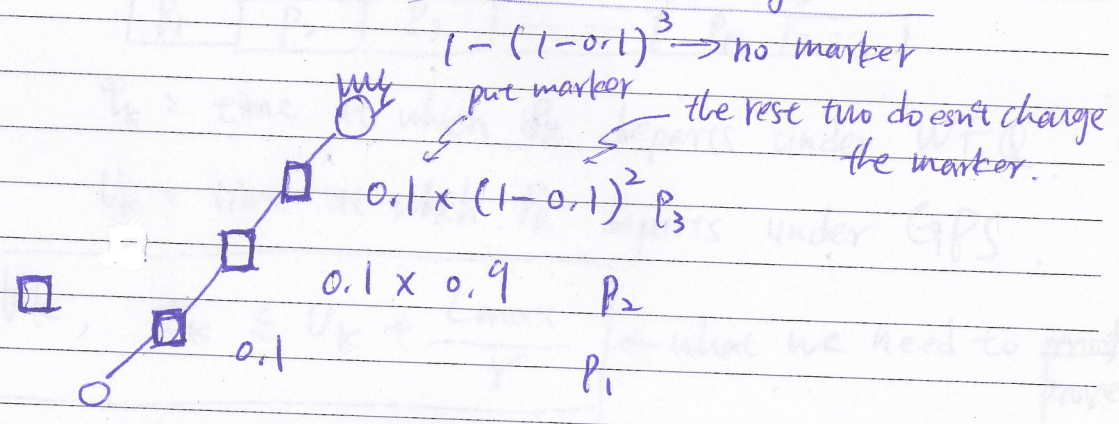 1 - (1-0.1)^3 → no marker
put marker
the rest two doesn't change
the marker.
0.1 × (1-0.1)^2 P3
0.1 × 0.9 P2
0.1 P1